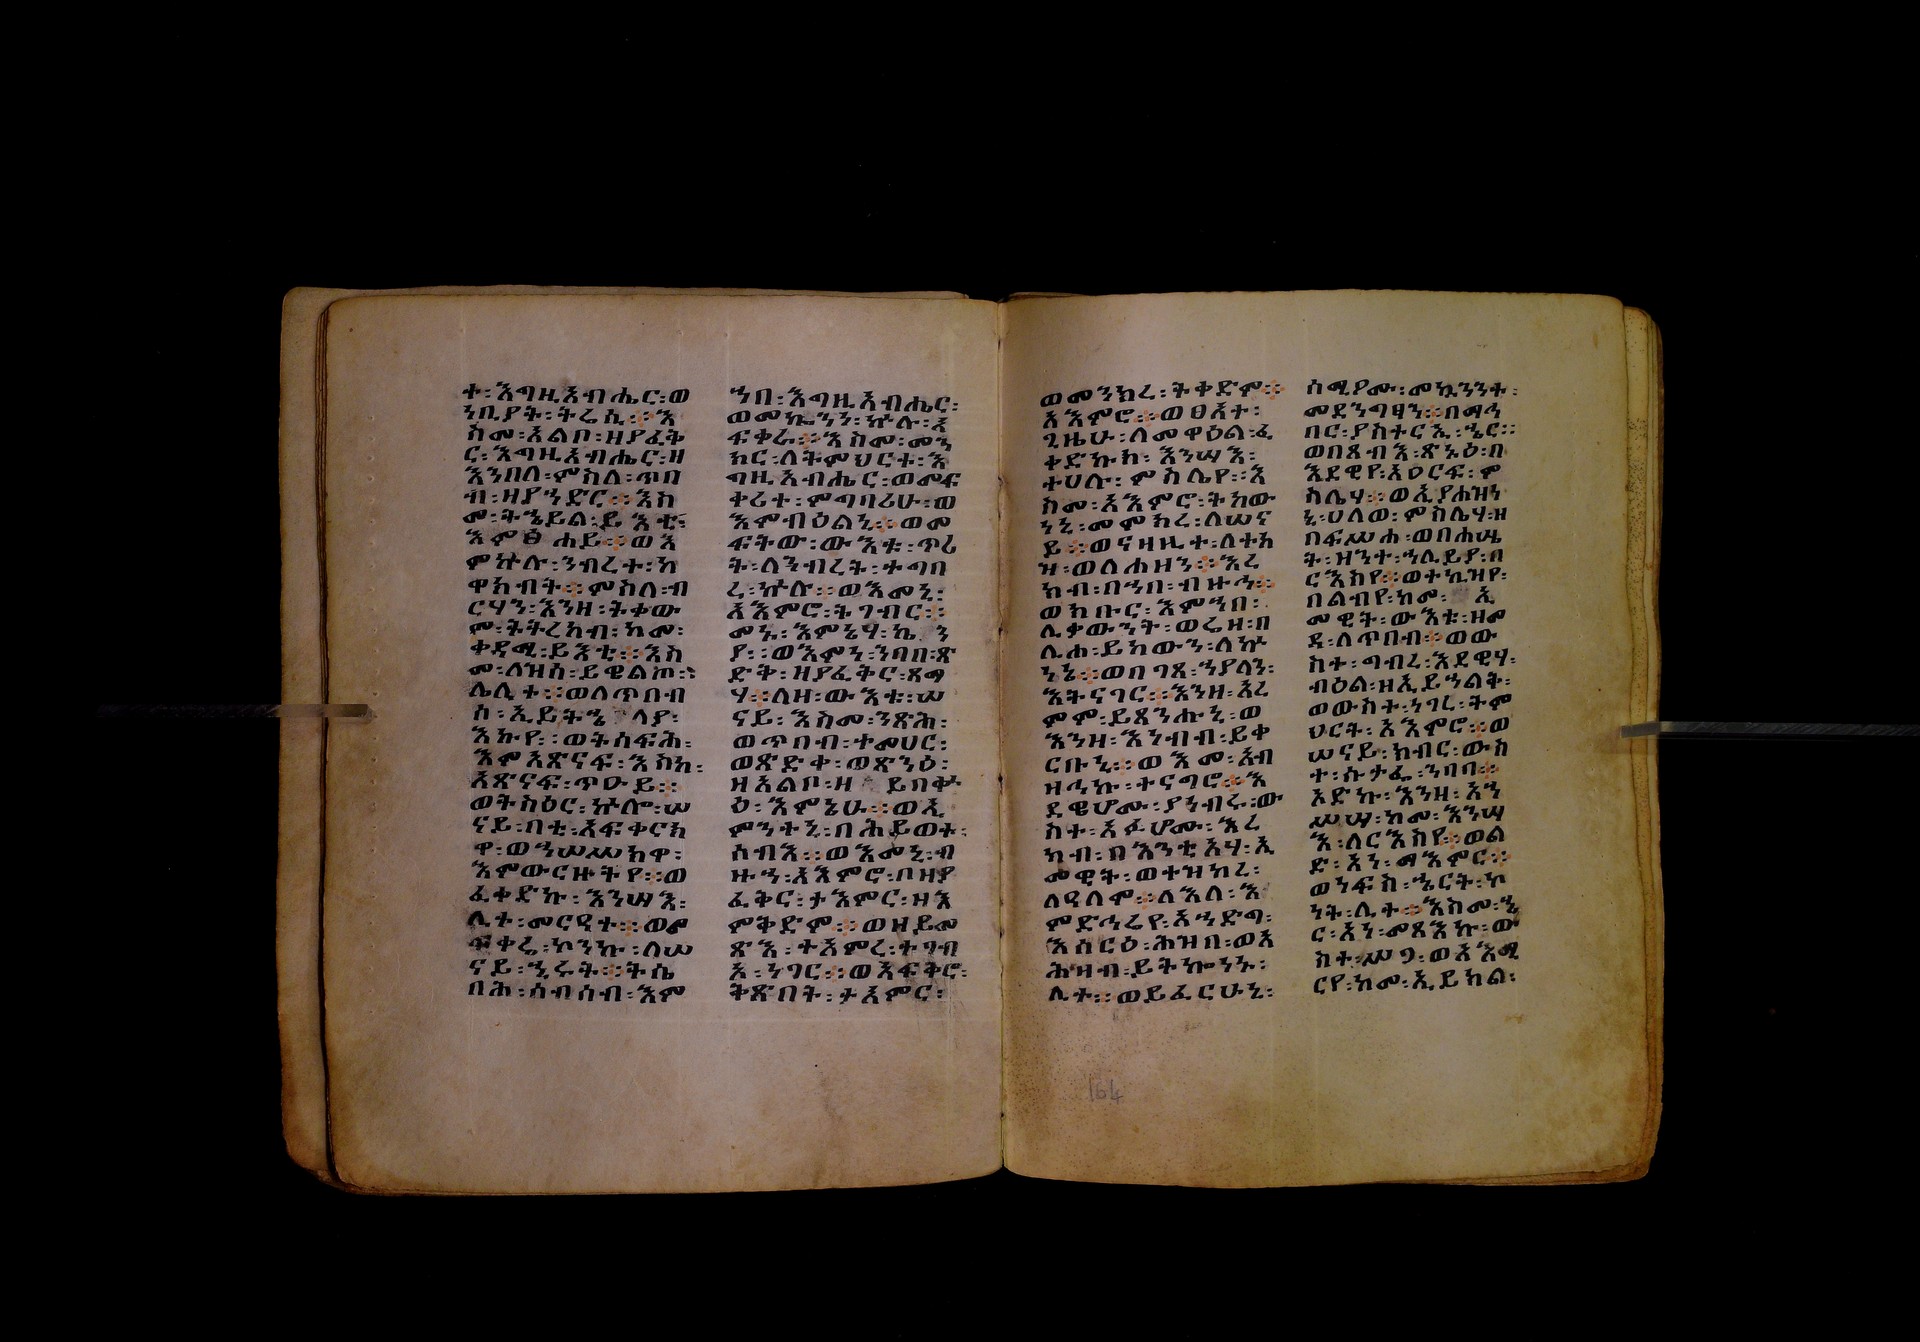 ተ፡እግዚአብሔር፡ወ
ነቢያት፡ትሬሲ፨እ
ስመ፡አልቦ፡ዘያፈቅ
ር፡እግዚአብሔር፡ዘ
እንበለ፡ምስለ፡ጥበ
ብ፡ዘየኀድር፨እስ
መ፡ትኄይል፡ይእቲ፡
እምፀሐይ፨ወእ
ምኵሉ፡ንብረተ፡ከ
ዋክብት፨ምስለ፡ብ
ርሃን፡እንዘ፡ትቀው
ም፡ትትረከብ፡ከመ፡
ቀዳሚ፡ይእቲ፨እስ
መ፡ለዝሰ፡ይዌልጦ፡
ሌሊት፨ወለጥበብ
ሰ፡ኢይትኄ ላያ፡
እኩየ፡፡ወትሰፍሕ፡
እምአጽናፍ፡እስከ፡
አጽናፍ፡ጥዑይ፨
ወትሰዕር፡ኵሎ፡ሠ
ናይ፡በቲ፡አፍቀርክ
ዋ፡ወኀሠሥክዋ፡
እምውርዙትየ፡፡ወ
ፈቀድኩ፡እንሣእ፡
ሊተ፡መርዓተ፨ወመ
ፍቀሬ፡ኮንኩ፡ለሠ
ናይ፡ኂሩት፨ትሴ
በሕ፡ሰብሰብ፡እም
ኀበ፡እግዚአብሔር፡
ወመኰንን፡ኵሉ፡አ
ፍቀራ፨እስመ፡መን
ክር፡ለትምህርተ፡እ
ግዚአብሔር፡ወመፍ
ቀሪተ፡ምግባሪሁ፡ወ
እምብዕልኒ፨ወመ
ፍትው፡ውእቱ፡ጥሪ
ት፡ለንብረት፡ተግበ
ረ፡ኵሉ፨ወእመኒ፡
አእምሮ፡ትገብር፨
መኑ፡እምኔሃ፡ኬ ን
ያ፡፡ወእምኒ፡ንባበ፡ጽ
ድቅ፡ዘያፈቅር፡ጻማ
ሃ፨ለዘ፡ውእቱ፡ሠ
ናይ፡እስመ፡ንጽሕ፡
ወጥበብ፡ተመሀር፡
ወጽድቀ፡ወጽንዕ፡
ዘአልቦ፡ዘ ይበቍ
ዕ፡እምኔሁ፨ወኢ
ምንተኒ፡በሕይወት፡
ሰብእ፨ወእመኒ፡ብ
ዙኀ፡አእምሮ፡ቦዘያ
ፈቅር፡ታእምር፡ዘእ
ምቅድም፨ወዘይመ
ጽእ፡ተአምረ፡ተገብ
አ፡ነገር፨ወአፍቅሮ፡
ቅጽበት፡ታአምር፡
ወመንክረ፡ትቀድም፨
አእምሮ፨ወፀአተ፡
ጊዜሁ፡ለመዋዕል፡ፈ
ቀድኩከ፡እንሣእ፡
ተሀሉ፡ምስሌየ፡፡እ
ስመ፡አእምሮ፡ትከው
ነኒ፡መምከረ፡ለሠና
ይ፨ወናዛዚተ፡ለተከ
ዝ፡ወለሐዘን፨እረ
ክብ፡በኀበ፡ብዙኅ፨
ወክቡር፡እምኀበ፡
ሊቃውንት፡ወሬዛ፡በ
ሊሐ፡ይከውን፡ለኵ
ነኔ፨ወበገጸ፡ኀያላን፡
እትናገር፨እንዘ፡አረ
ምም፡ይጸንሑኒ፡ወ
እንዘ፡እነብብ፡ይቀ
ርቡኒ፨ወእመ፡አብ
ዛኅኩ፡ተናግሮ፨እ
ደዊሆሙ፡ያነብሩ፡ው
ስተ፡አፉሆሙ፡እረ
ክብ፡በእንቲአሃ፡ኢ
መዊት፡ወተዝከረ፡
ለዓለም፨ለእለ፡እ
ምድኅሬየ፡አኀድግ፡
እሰርዕ፡ሕዝበ፡ወአ
ሕዛብ፡ይትኰነኑ፡
ሊተ፨ወይፈርሁኒ፡
ሰሚዖሙ፡መኳንንት፡
መደንግፃን፨በማኅ
በር፡ያስተርኢ፡ኄር፡፡
ወበጸብእ፡ጽኑዕ፡በ
እደዊየ፡አዐርፍ፡ም
ስሌሃ፨ወኢያሐዝነ
ኒ፡ሀለወ፡ምስሌሃ፡ዘ
በፍሥሐ፡ወበሐሤ
ት፡ዝንተ፡ኀሊይየ፡በ
ርእስየ፨ወተከዝየ፡
በልብየ፡ከመ፡ ኢ
መዊት፡ውእቱ፡ዘመ
ዳ፡ለጥበብ፨ወው
ስተ፡ግብረ፡እደዊሃ፡
ብዕል፡ዘኢይኀልቅ፡
ወውስተ፡ነገረ፡ትም
ህርት፡አእምሮ፨ወ
ሠናይ፡ክብር፡ውስ
ተ፡ሱታፌ፡ንባባ፨
አድኩ፡እንዘ፡አኀ
ሥሥ፡ከመ፡እንሣ
እ፡ለርእስየ፨ወል
ድ፡አነ፡ማእምር፨
ወነፍስ፡ኄርት፡ኮ
ነት፡ሊተ፨እስመ፡ኄ
ር፡አነ፡መጻእኩ፡ው
ስተ፡ሥጋ፡ወአእሚ
ርየ፡ከመ፡ኢይክል፡
164